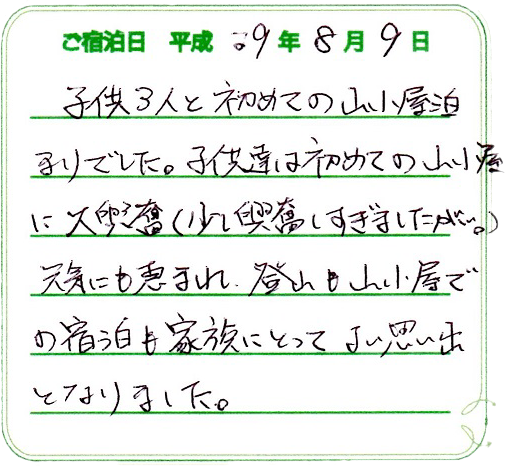 ご宿泊日 平成 29年8月9日
子供3人と初めての山小屋泊
まりでした。子供達は初めての山小屋
に大興奮(少し興奮しすぎましたが…。)
天気にも恵まれ、登山も山小屋で
の宿泊も家族にとってよい思い出
となりました。